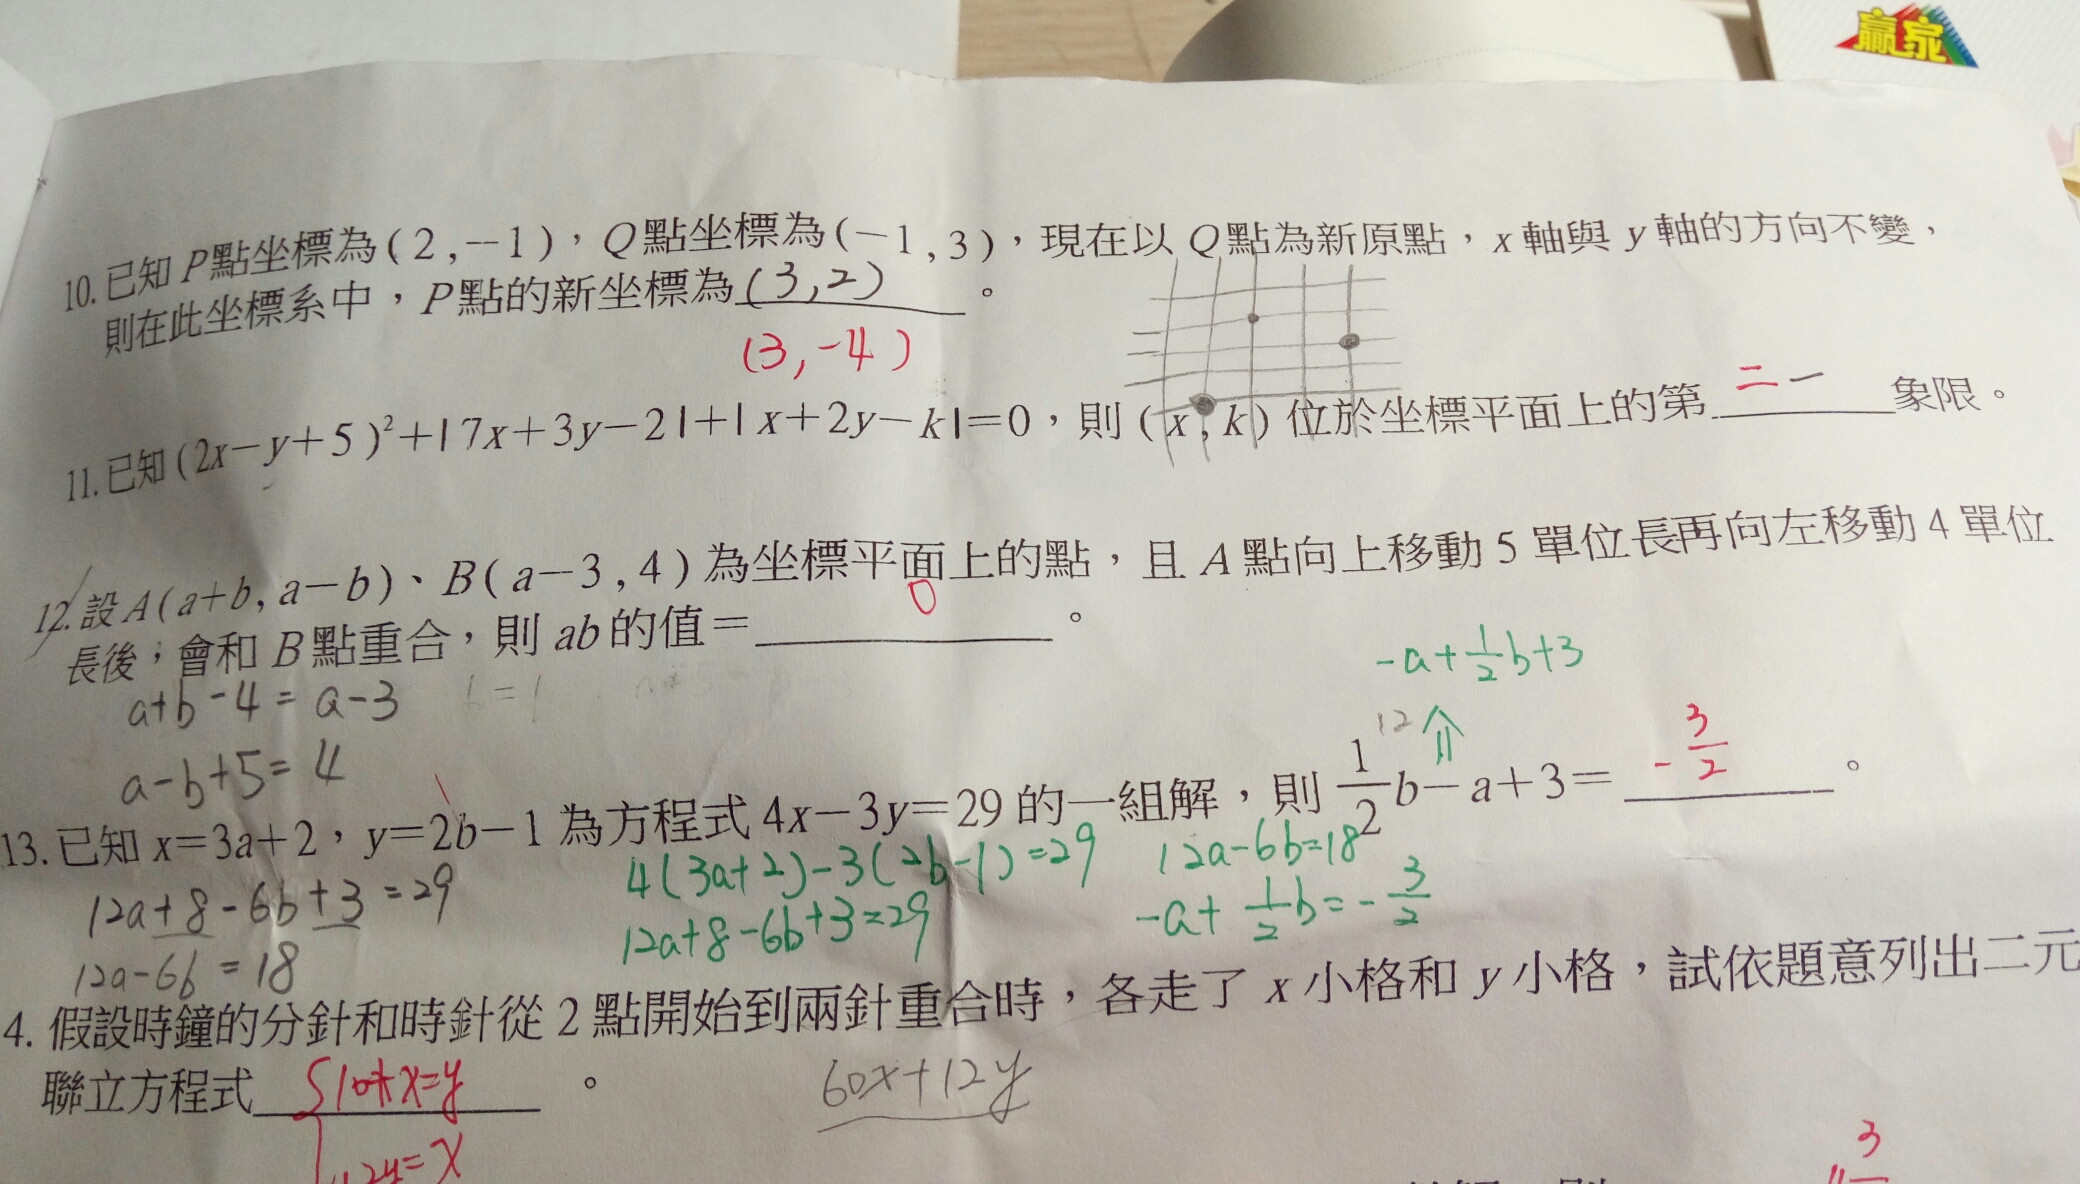 贏家
10.已知P點坐標為(2,-1),Q點坐標為(-1,3),現在以Q點為新原點,x軸與y軸的方向不變,
則在此坐標系中,P點的新坐標為(3,2)。
(3,-4)
11.已知(2x-y+5)²+|7x+3y-2|+|x+2y-k|=0,則(x,k)位於坐標平面上的第二一象限。
12.設A(a+b,a-b)、B(a-3,4)為坐標平面上的點,且A點向上移動5單位長再向左移動4單位
長後;會和B點重合,則ab的值=0。
a+b-4=a-3 b=1
-a+1/2b+3
a-b+5=4
12
13.已知x=3a+2,y=2b-1為方程式4x-3y=29的一組解,則1/2b-a+3=-3/2。
12a+8-6b+3=29 4(3a+2)-3(2b-1)=29 12a-6b=18
12a-6b=18 12a+8-6b+3=29 -a+1/2b=-3/2
4.假設時鐘的分針和時針從2點開始到兩針重合時,各走了x小格和y小格,試依題意列出二元
聯立方程式 x=y。 60x+12y
12y=x
3